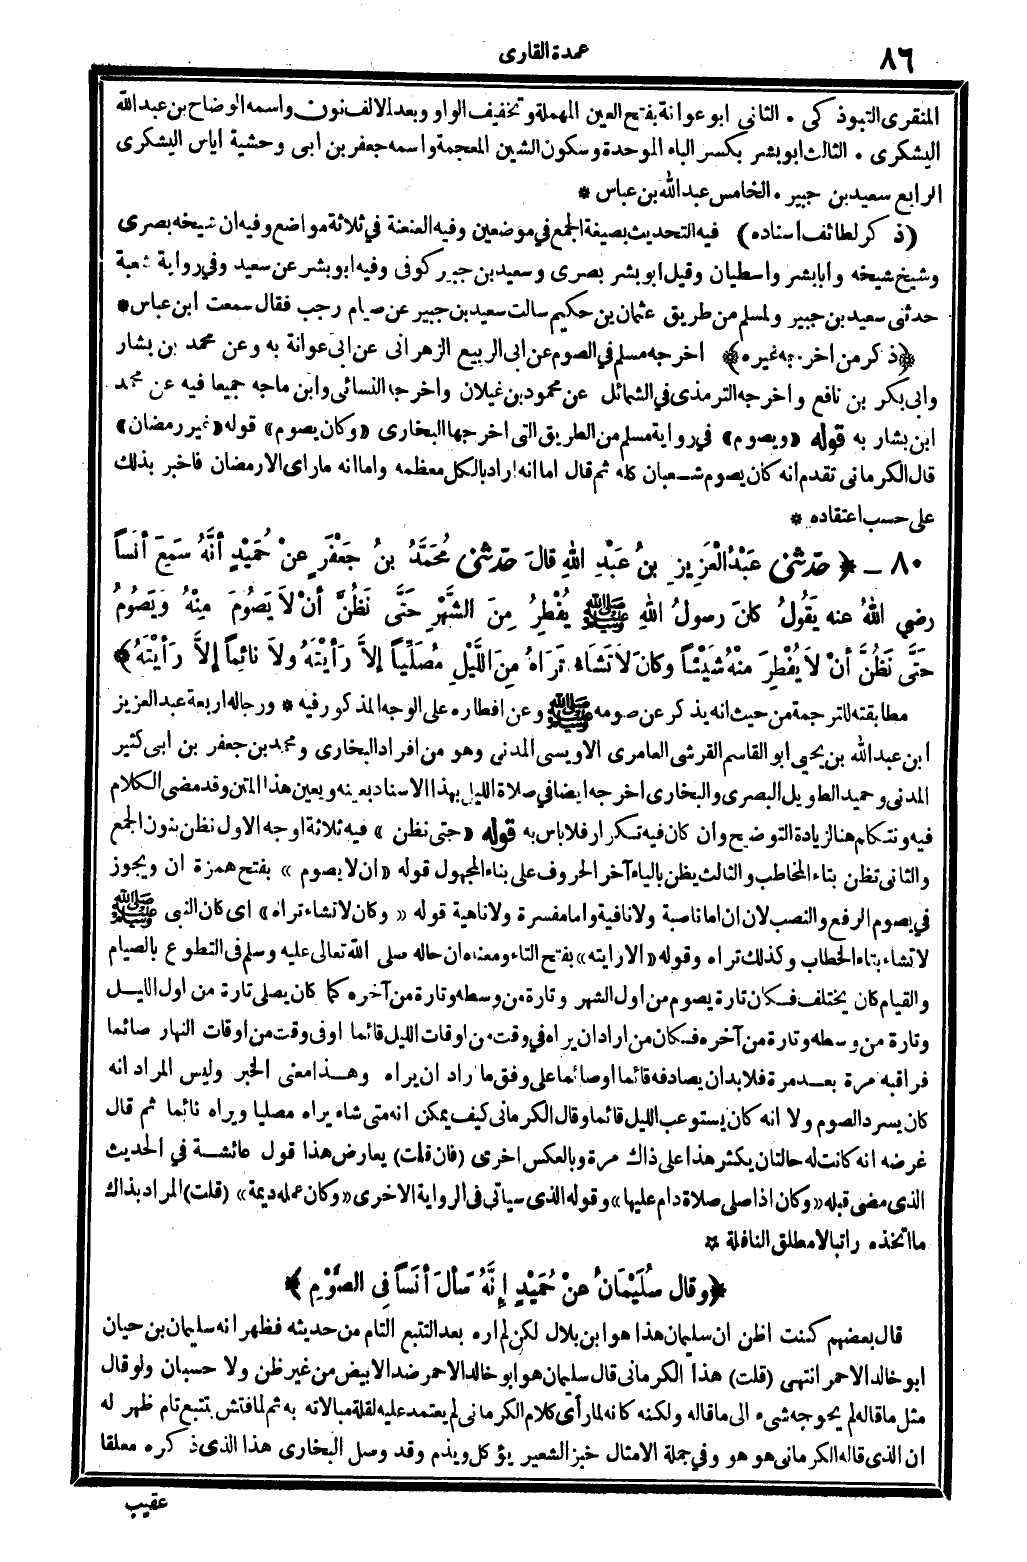 ٨٦
عمدة القارى
المنقرى التبوذكى . الثانى ابو عوانة بفتح العين المهملة وتخفيف الواو وبعد الالف نون واسمه الوضاح بن عبدالله
اليشكرى . الثالث ابو بشر بكسر الباء الموحدة وسكون الشين المعجمة واسمه جعفر بن ابى وحشية اياس اليشكرى
الرابع سعيد بن جبير . الخامس عبدالله بن عباس *
(ذكر لطائف اسناده) فيه التحديث بصيغة الجمع فى موضعين وفيه العنعنة فى ثلاثة مواضع وفيه ان شيخه بصرى
وشيخ شيخه وابا بشر واسطيان وقيل ابو بشر بصرى وسعيد بن جبير كوفى وفيه ابو بشر عن سعيد وفى رواية شعبة
حدثنى سعيد بن جبير ولمسلم من طريق عثمان بن حكيم سالت سعيد بن جبير عن صيام رجب فقال سمعت ابن عباس *
﴿ذكر من اخرجه غيره﴾ اخرجه مسلم فى الصوم عن ابى الربيع الزهرانى عن ابى عوانة به وعن محمد بن بشار
وابى بكر بن نافع واخرجه الترمذى فى الشمائل عن محمود بن غيلان واخرجه النسائى وابن ماجه جميعا فيه عن محمد
ابن بشار به قوله «ويصوم» فى رواية مسلم من الطريق التى اخرجها البخارى «وكان يصوم» قوله «غير رمضان»
قال الكرمانى تقدم انه كان يصوم شعبان كله ثم قال اما انه اراد بالكل معظمه واما انه ما راى الا رمضان فاخبر بذلك
على حسب اعتقاده *
٨٠ ـ ﴿حَدَّثَنِي عَبْدُ الْعَزِيزِ بنُ عَبْدِ اللهِ قالَ حَدَّثَنِي مُحَمَّدُ بنُ جَعْفَرٍ عنْ حُمَيْدٍ أنَّهُ سَمِعَ أنَساً
رضي اللهُ عنه يَقُولُ كانَ رسولُ اللهِ ﷺ يُفْطِرُ مِنَ الشَّهْرِ حَتَّى نَظُنَّ أنْ لاَ يَصُومَ مِنْهُ وَيَصُومُ
حَتَّى نَظُنَّ أنْ لاَ يُفْطِرَ مِنْهُ شَيْئاً وكانَ لاَ تَشَاءُ تَرَاهُ مِنَ اللَّيْلِ مُصَلِّياً إلاَّ رَأيْتَهُ ولاَ نائِماً إلاَّ رَأيْتَهُ﴾
مطابقته للترجمة من حيث انه يذكر عن صومه ﷺ وعن افطاره على الوجه المذكور فيه * ورجاله اربعة عبدالعزيز
ابن عبدالله بن يحيى ابو القاسم القرشى العامرى الاويسى المدنى وهو من افراد البخارى ومحمد بن جعفر بن ابى كثير
المدنى وحميد الطويل البصرى والبخارى اخرجه ايضا فى صلاة الليل بهذا الاسناد بعينه وبعين هذا المتن وقد مضى الكلام
فيه ونتكلم هنا لزيادة التوضيح وان كان فيه تكرار فلا باس به قوله «حتى نظن» فيه ثلاثة اوجه الاول نظن بنون الجمع
والثانى تظن بتاء المخاطب والثالث يظن بالياء آخر الحروف على بناء المجهول قوله «ان لا يصوم» بفتح همزة ان ويجوز
فى يصوم الرفع والنصب لان ان اما ناصبة ولا نافية واما مفسرة ولا ناهية قوله «وكان لا تشاء تراه» اى كان النبى ﷺ
لا تشاء بتاء الخطاب وكذلك تراه وقوله «الا رايته» بفتح التاء ومعناه ان حاله صلى الله تعالى عليه وسلم فى التطوع بالصيام
والقيام كان يختلف فكان تارة يصوم من اول الشهر وتارة من وسطه وتارة من آخره كما كان يصلى تارة من اول الليل
وتارة من وسطه وتارة من آخره فكان من اراد ان يراه فى وقت من اوقات الليل قائما او فى وقت من اوقات النهار صائما
فراقبه مرة بعد مرة فلا بد ان يصادفه قائما او صائما على وفق ما راد ان يراه وهذا معنى الخبر وليس المراد انه
كان يسرد الصوم ولا انه كان يستوعب الليل قائما وقال الكرمانى كيف يمكن انه متى شاء يراه مصليا ويراه نائما ثم قال
غرضه انه كانت له حالتان يكثر هذا على ذاك مرة وبالعكس اخرى (فان قلت) يعارض هذا قول عائشة فى الحديث
الذى مضى قبله «وكان اذا صلى صلاة دام عليها» وقوله الذى سياتى فى الرواية الاخرى «وكان عمله ديمة» (قلت) المراد بذاك
ما اتخذه راتبا لا مطلق النافلة *
﴿وقال سُلَيْمَانُ عنْ حُمَيْدٍ إنَّهُ سَألَ أنَساً فِي الصَّوْمِ﴾
قال بعضهم كنت اظن ان سليمان هذا هو ابن بلال لكن لم اره بعد التتبع التام من حديثه فظهر انه سليمان بن حيان
ابو خالد الاحمر انتهى (قلت) هذا الكرمانى قال سليمان هو ابو خالد الاحمر ضد الابيض من غير ظن ولا حسبان ولو قال
مثل ما قاله لم يحوجه شىء الى ما قاله ولكنه كانه لما رأى كلام الكرمانى لم يعتمد عليه لقلة مبالاته به ثم لما فتش بتتبع تام ظهر له
ان الذى قاله الكرمانى هو هو وفى جملة الامثال خبز الشعير يؤكل ويذم وقد وصل البخارى هذا الذى ذكره معلقا
عقيب